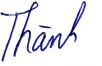 Thành